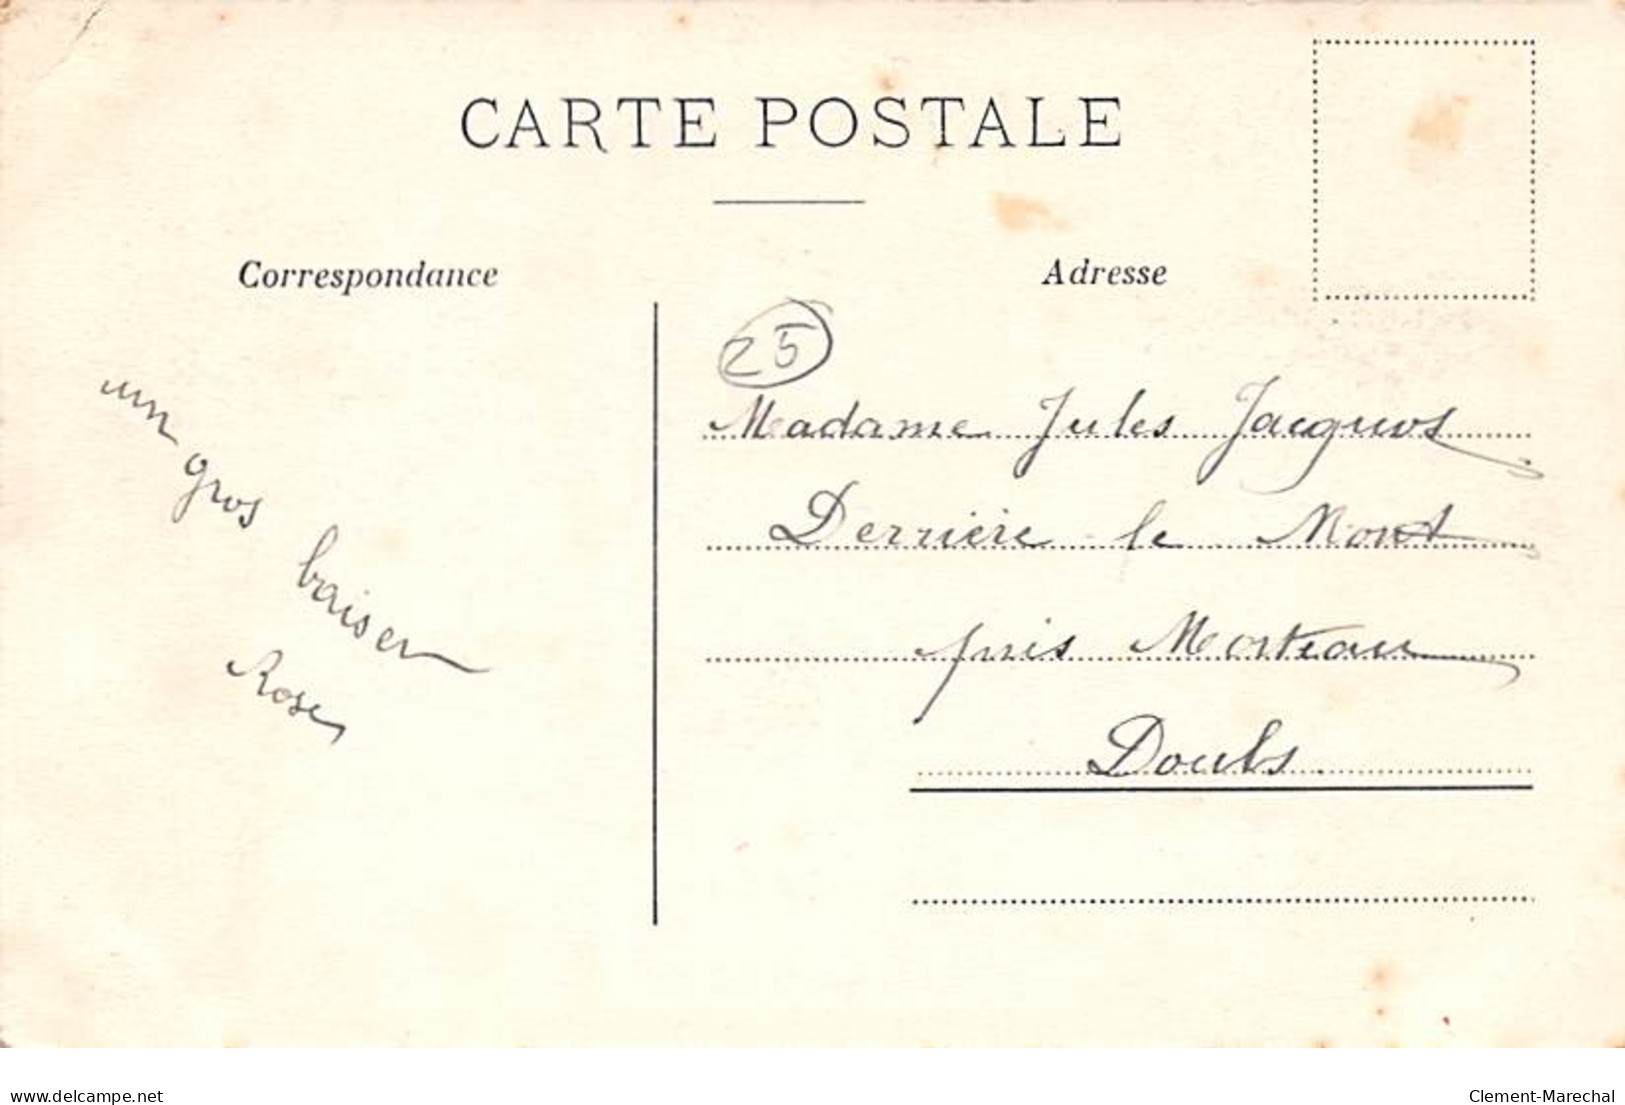 CARTE POSTALE
Correspondance
un gros baiser
Rose
Adresse
25
Madame Jules Jacquot
Derrière le Mont
près Morteau
Doubs
delcampe.net
Clement-Marechal